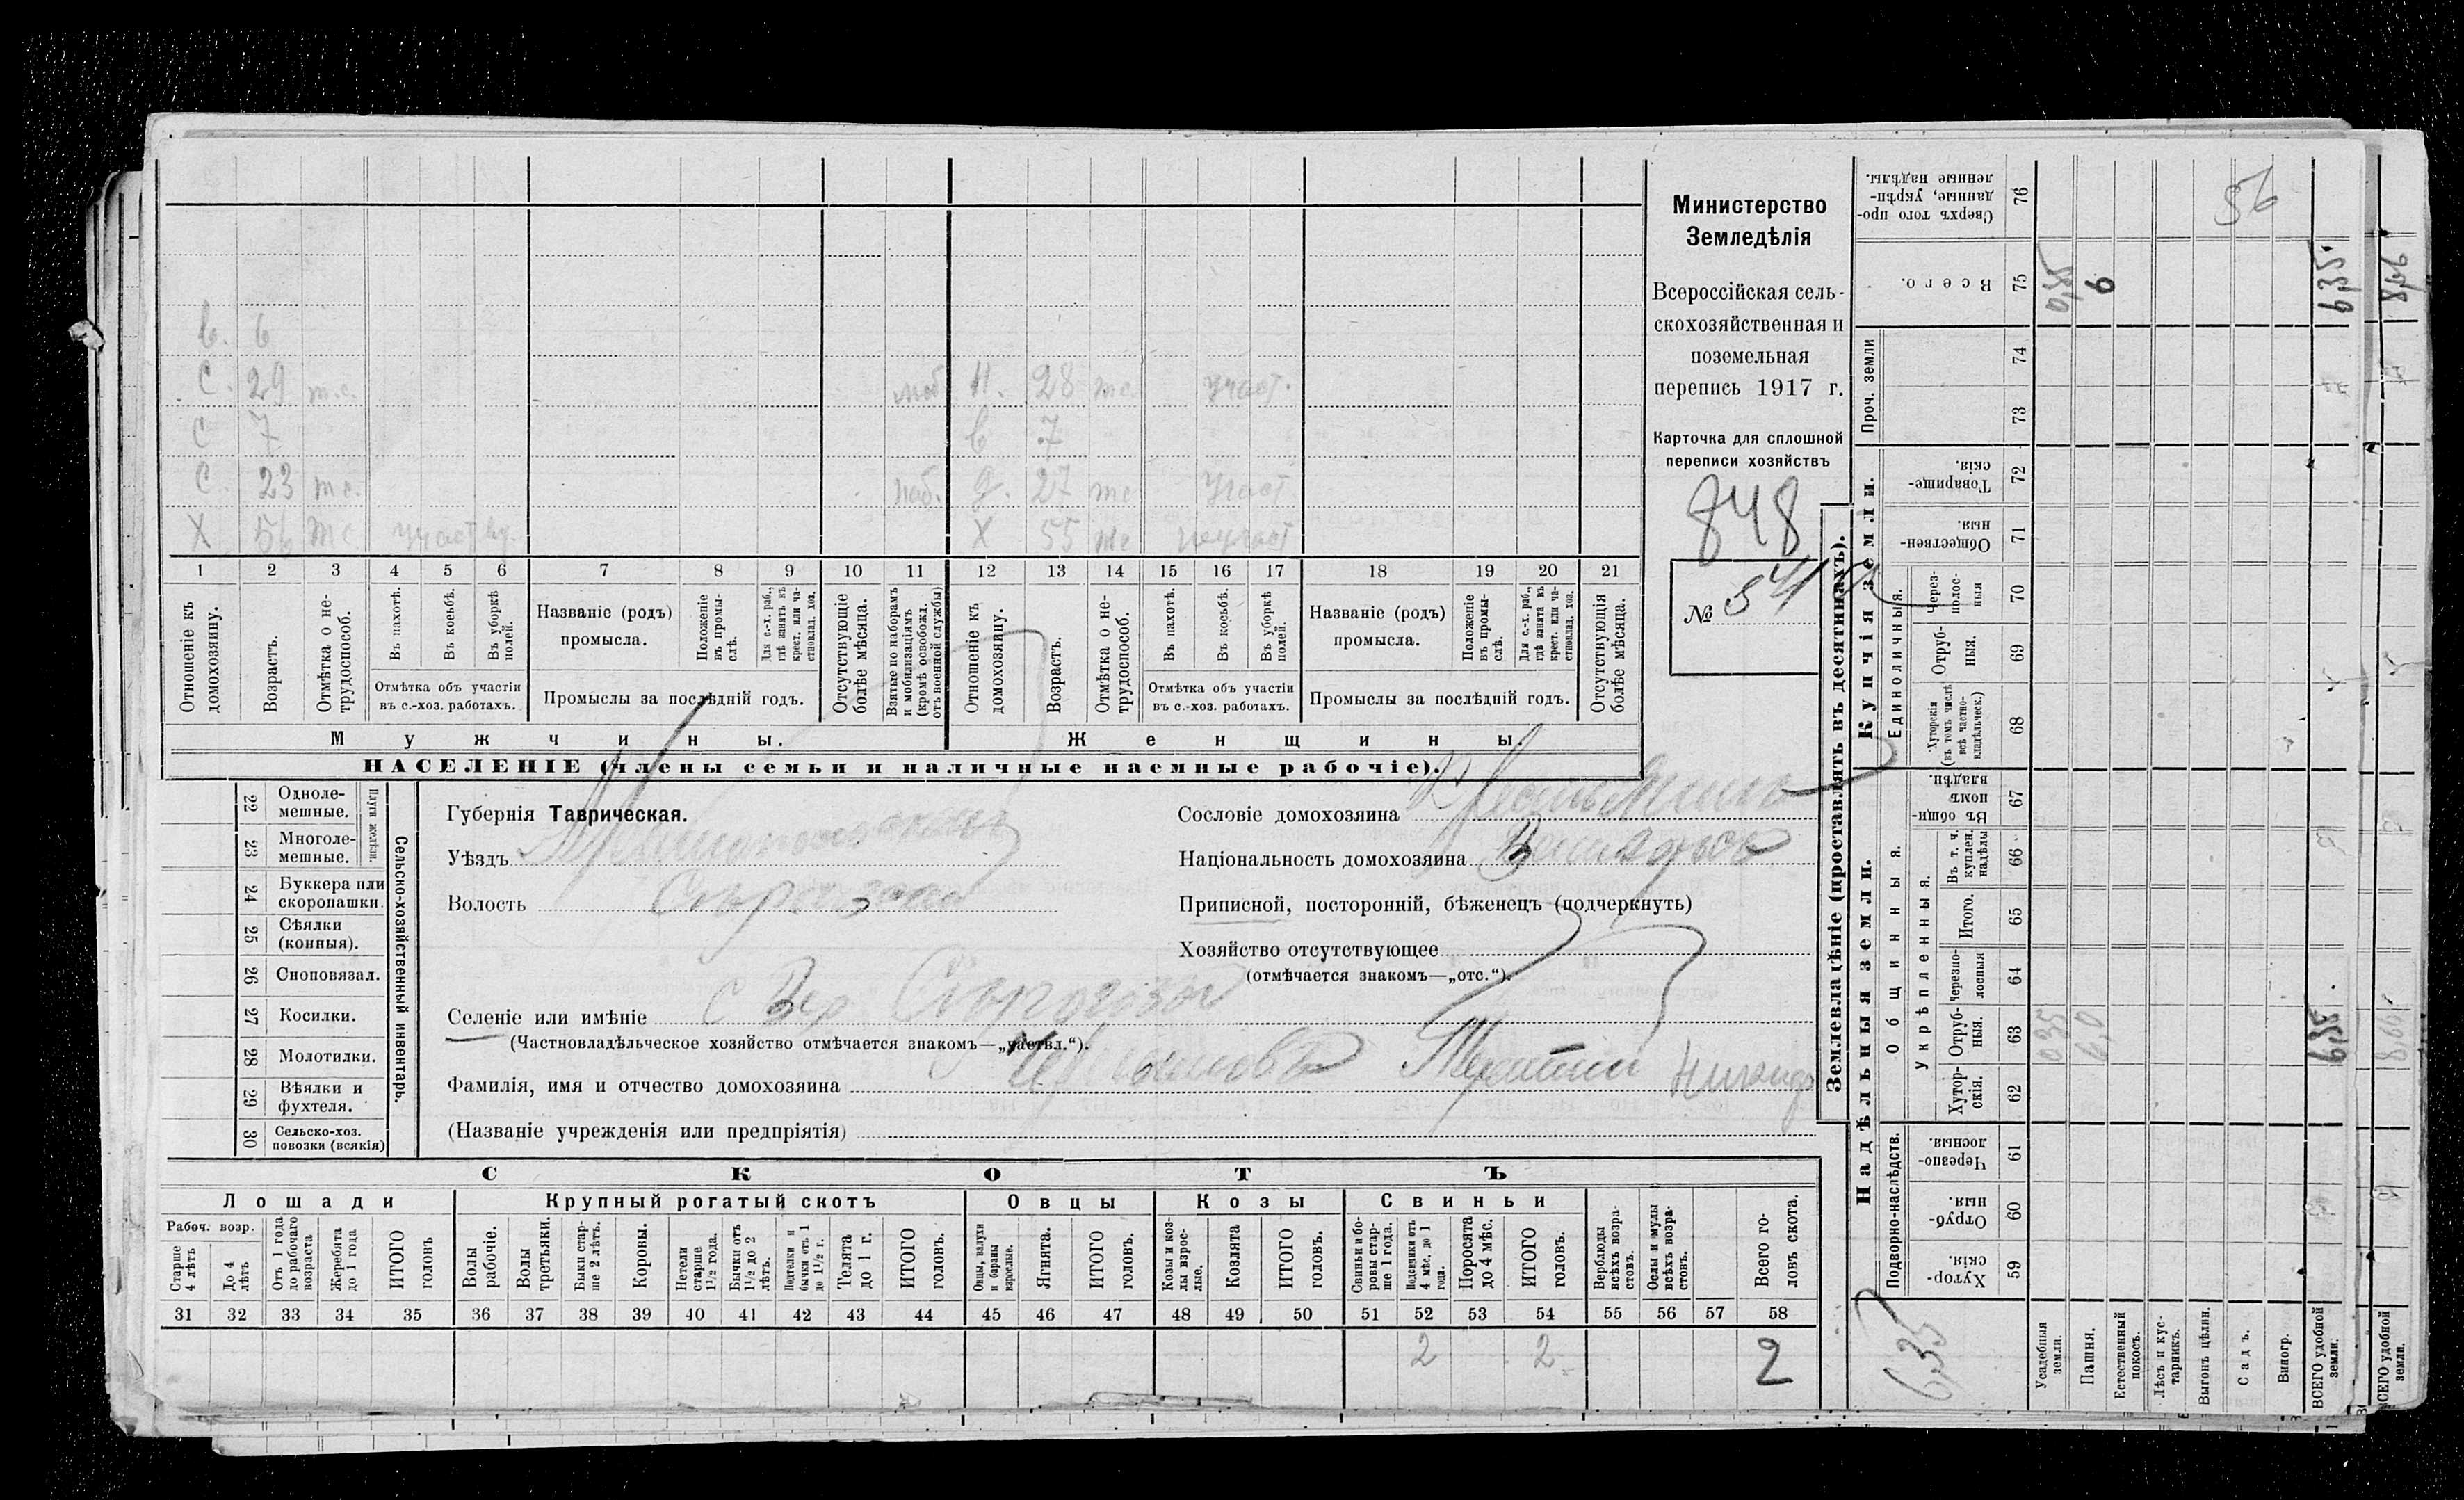 Министерство
Земледѣлія
Всероссійская сель-
скохозяйственная и
поземельная
перепись 1917 г.
Карточка для сплошной
переписи хозяйствъ
848
№ 54
в. 6
С. 29 т.с. наб Н. 28 т.с. участ.
С 7 в 7
С. 23 т.с. наб. д. 27 т.с. участ
Х 56 т.с. участву. Х 55 т.с. неучаст
1 2 3 4 5 6 7 8 9 10 11 12 13 14 15 16 17 18 19 20 21
Отношеніе къ домохозяину.
Возрастъ.
Отмѣтка о не-трудоспособ.
Въ пахотѣ.
Въ косьбѣ.
Въ уборкѣ полей.
Отмѣтка объ участіи въ с.-хоз. работахъ.
Названіе (родъ) промысла.
Положеніе въ промы-слѣ.
Для с.-х. раб., гдѣ занятъ въ крест. или ча-стновлад. хоз.
Промыслы за послѣдній годъ.
Отсутствующіе болѣе мѣсяца.
Взятые по наборамъ и мобилизаціямъ (кромѣ освобожд. отъ военной службы)
Отношеніе къ домохозяину.
Возрастъ.
Отмѣтка о не-трудоспособ.
Въ пахотѣ.
Въ косьбѣ.
Въ уборкѣ полей.
Отмѣтка объ участіи въ с.-хоз. работахъ.
Названіе (родъ) промысла.
Положеніе въ промы-слѣ.
Для с.-х. раб., гдѣ занятъ въ крест. или ча-стновлад. хоз.
Промыслы за послѣдній годъ.
Отсутствующія болѣе мѣсяца.
Мужчины. Женщины.
НАСЕЛЕНІЕ (члены семьи и наличные наемные рабочіе).
22 Одноле-мешные.
23 Многоле-мешные.
Плуги желѣзн.
24 Буккера или скоропашки.
25 Сѣялки (конныя).
26 Сноповязал.
27 Косилки.
28 Молотилки.
29 Вѣялки и фухтеля.
30 Сельско-хоз. повозки (всякія)
Сельско-хозяйственный инвентарь.
Губернія Таврическая.
Уѣздъ
Волость
Селеніе или имѣніе с Вер.
(Частновладѣльческое хозяйство отмѣчается знакомъ—„частвл.“).
Фамилія, имя и отчество домохозяина
(Названіе учрежденія или предпріятія)
Сословіе домохозяина
Національность домохозяина
Приписной, посторонній, бѣженецъ (подчеркнуть)
Хозяйство отсутствующее
(отмѣчается знакомъ—„отс.“).
СКОТЪ
Лошади
Рабоч. возр.
Старше 4 лѣтъ
До 4 лѣтъ
Отъ 1 года до рабочаго возраста
Жеребята до 1 года
ИТОГО головъ
Крупный рогатый скотъ
Волы рабочіе.
Волы третьяки.
Быки стар-ше 2 лѣтъ.
Коровы.
Нетели старше 1½ года.
Бычки отъ 1½ до 2 лѣтъ.
Подтелки и бычки отъ 1 до 1½ г.
Телята до 1 г.
ИТОГО головъ.
Овцы
Овцы, валухи и бараны взрослые.
Ягнята.
ИТОГО головъ.
Козы
Козы и коз-лы взрос-лые.
Козлята
ИТОГО головъ.
Свиньи
Свиньи и бо-ровы стар-ше 1 года.
Подсвинки отъ 4 мѣс. до 1 года.
Поросята до 4 мѣс.
ИТОГО головъ.
Верблюды всѣхъ возра-стовъ.
Ослы и мулы всѣхъ возра-стовъ.
Всего го-ловъ скота.
31 32 33 34 35 36 37 38 39 40 41 42 43 44 45 46 47 48 49 50 51 52 53 54 55 56 57 58
2 2 2
Землевладѣніе (проставлять въ десятинахъ).
Надѣльныя земли.
Купчія земли.
Подворно-наслѣдств.
Общинныя.
Укрѣпленныя.
Единоличныя.
Проч. земли
Хутор-скія. 59
Отруб-ныя. 60
Черезпо-лосныя. 61
Хутор-скія. 62
Отруб-ныя. 63
Черезпо-лосныя 64
Итого. 65
Въ т. ч. куплен. надѣлы 66
Въ общи-номъ владѣн. 67
Хуторскія (въ томъ числѣ всѣ частно-владѣльческ.) 68
Отруб-ныя. 69
Через-полос-ныя 70
Обществен-ныя. 71
Товарище-скія. 72
73
74
Всего. 75
Сверхъ того про-данные, укрѣп-ленные надѣлы. 76
Усадебныя земли. 0,35 0,35
Пашня. 6,0 6
Естественный покосъ.
Лѣсъ и кус-тарникъ.
Выгонъ цѣлин.
Садъ.
Виногр.
ВСЕГО удобной земли. 6,35 6,35
СЕГО удобной земли.
6,35
56